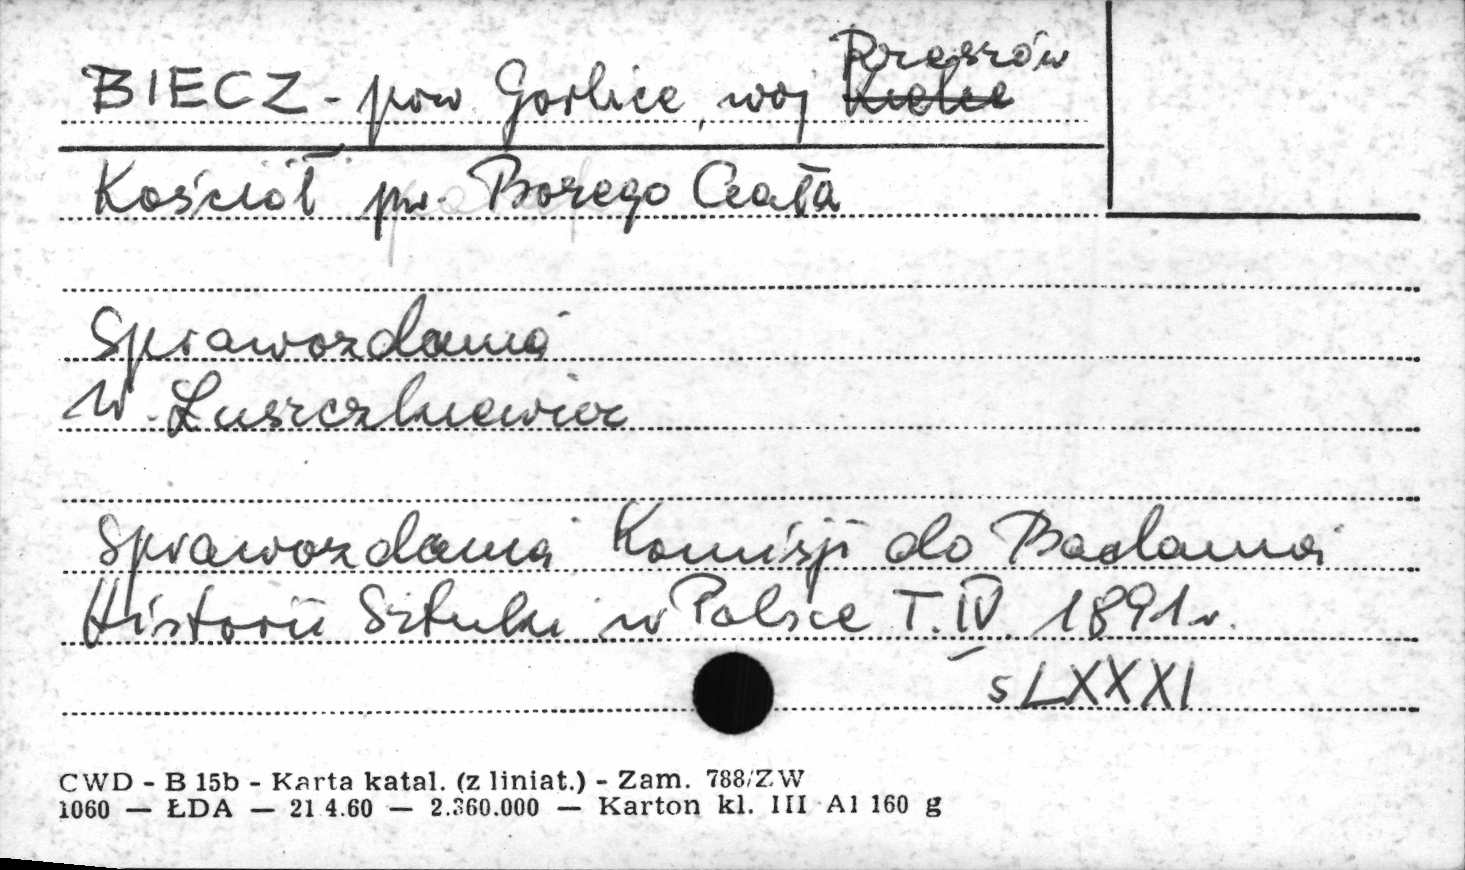 BIECZ - pow Gorlice, woj Kielce Rzeszów
Kościół pw. Bożego Ciała
Sprawozdania
W. Łuszczkiewicz
Sprawozdania Komisji do Badania
Historii Sztuki w Polsce T. IV. 1891 r.
s LXXXI
CWD - B 15b - Karta katal. (z liniat.) - Zam. 788/ZW
1060 — ŁDA — 21 4.60 — 2.360.000 — Karton kl. III A1 160 g